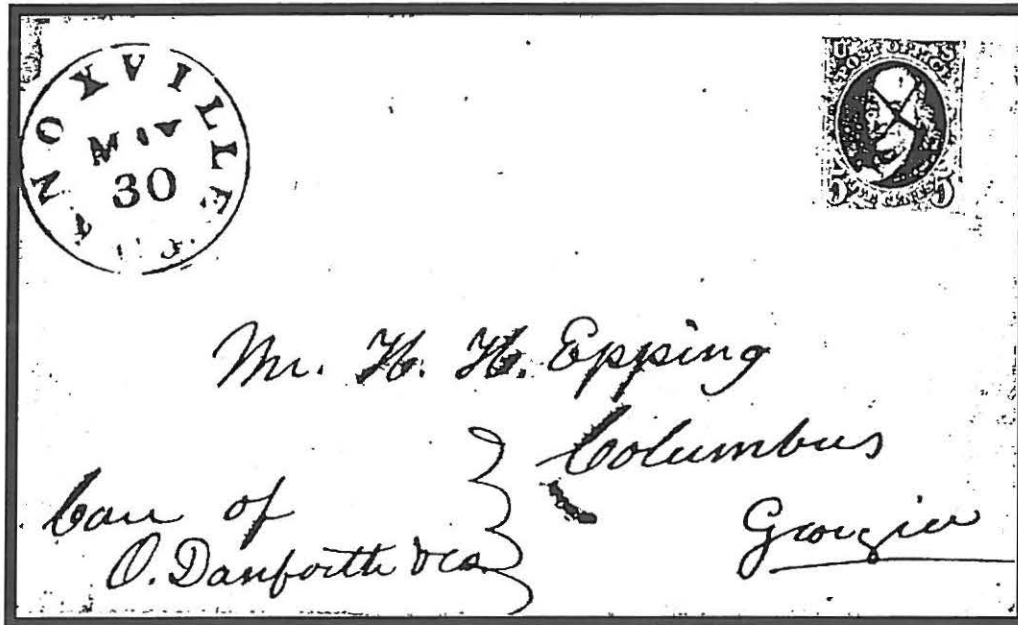 KNOXVILLE
MAY
30
U S
POST OFFICE
5 FIVE CENTS 5
Mr. H. H. Epping
Columbus
Georgia
Care of
O. Danforth & Co.